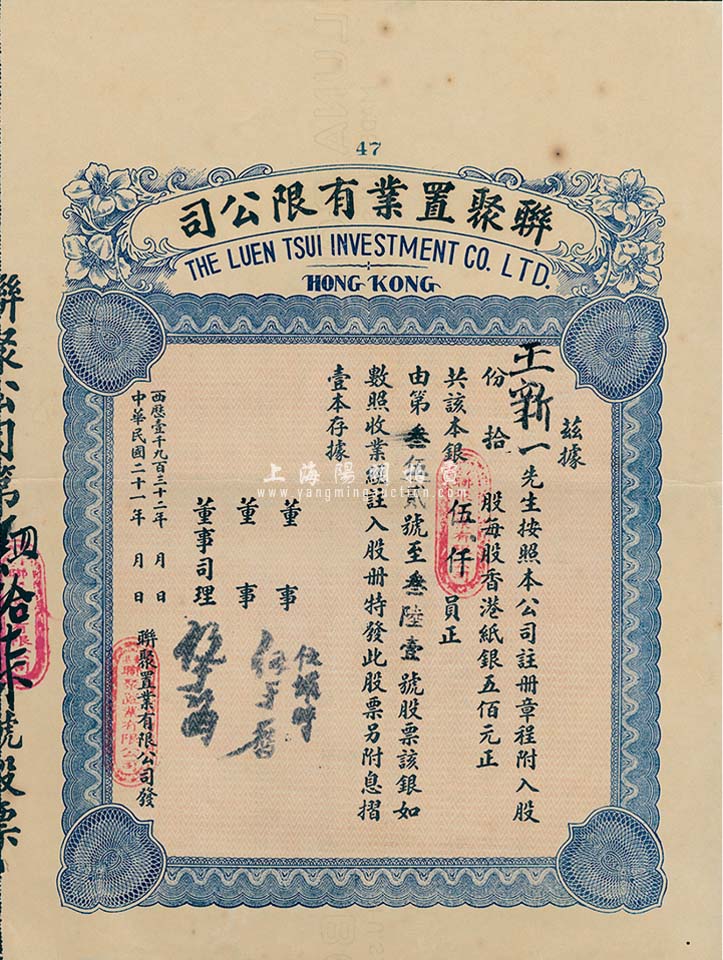 47
聯聚置業有限公司
THE LUEN TSUI INVESTMENT CO. LTD.
HONG KONG
茲據
王新一先生按照本公司註册章程附入股
份拾股每股香港紙銀五佰元正
共該本銀伍仟員正
由第叁伍貳號至叁陸壹號股票該銀如
數照收業經註入股册特發此股票另附息摺
壹本存據
董事
董事
董事司理
西歷壹千九百三十二年 月 日
中華民國二十一年 月 日
聯聚置業有限公司發
聯聚公司第 拾柒號股票
上海陽明拍賣
www.yangmingauction.com